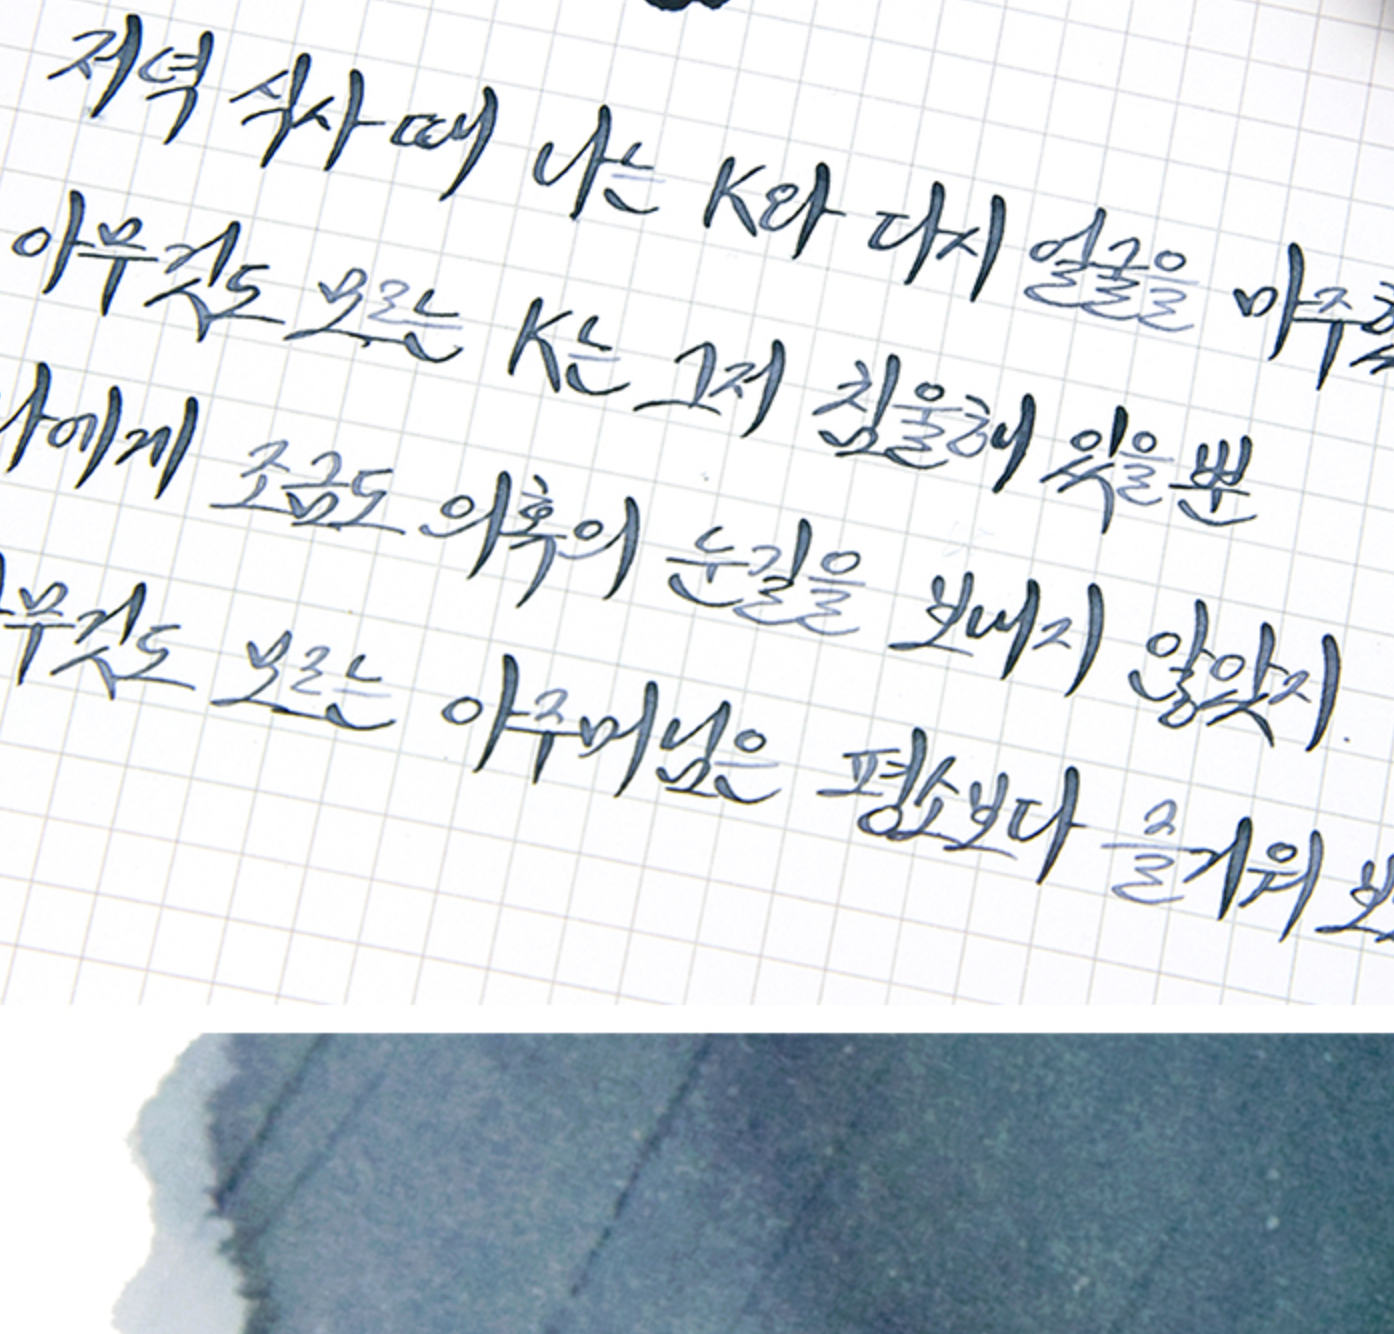 저녁 식사 때 나는 K와 다시 얼굴을
아무것도 모르는 K는 그저 침울해 있을 뿐
나에게 조금도 의혹의 눈길을 보내지 않았지.
아무것도 모르는 아주머님은 평소보다 즐거워